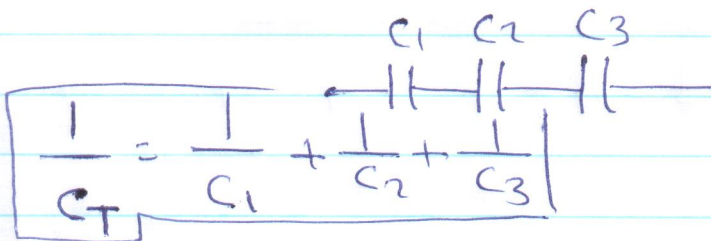 C1 C2 C3
1/CT = 1/C1 + 1/C2 + 1/C3